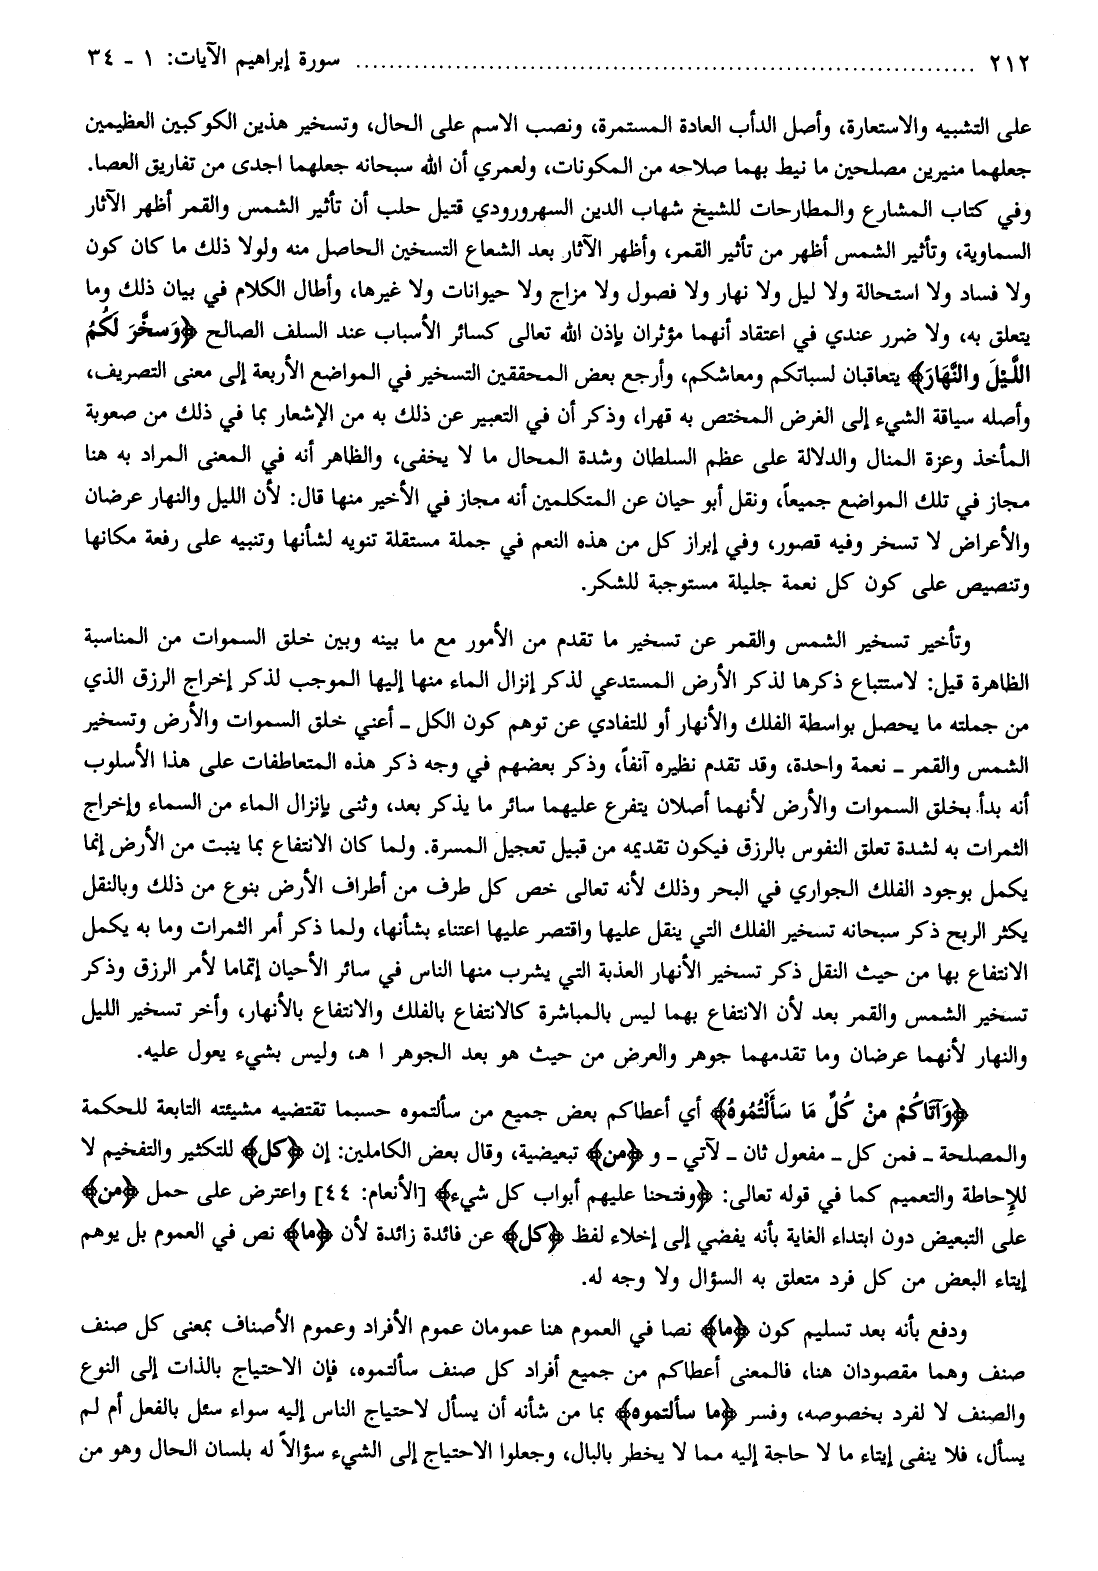 ٢١٢ ........................................................................... سورة إبراهيم الآيات: ١ ـ ٣٤
على التشبيه والاستعارة، وأصل الدأب العادة المستمرة، ونصب الاسم على الحال، وتسخير هذين الكوكبين العظيمين
جعلهما منيرين مصلحين ما نيط بهما صلاحه من المكونات، ولعمري أن الله سبحانه جعلهما اجدى من تفاريق العصا.
وفي كتاب المشارع والمطارحات للشيخ شهاب الدين السهرورودي قتيل حلب أن تأثير الشمس والقمر أظهر الآثار
السماوية، وتأثير الشمس أظهر من تأثير القمر، وأظهر الآثار بعد الشعاع التسخين الحاصل منه ولولا ذلك ما كان كون
ولا فساد ولا استحالة ولا ليل ولا نهار ولا فصول ولا مزاج ولا حيوانات ولا غيرها، وأطال الكلام في بيان ذلك وما
يتعلق به، ولا ضرر عندي في اعتقاد أنهما مؤثران بإذن الله تعالى كسائر الأسباب عند السلف الصالح ﴿وَسخَّرَ لَكُمُ
اللَّيْلَ والنَّهَارَ﴾ يتعاقبان لسباتكم ومعاشكم، وأرجع بعض المحققين التسخير في المواضع الأربعة إلى معنى التصريف،
وأصله سياقة الشيء إلى الغرض المختص به قهرا، وذكر أن في التعبير عن ذلك به من الإشعار بما في ذلك من صعوبة
المأخذ وعزة المنال والدلالة على عظم السلطان وشدة المحال ما لا يخفى، والظاهر أنه في المعنى المراد به هنا
مجاز في تلك المواضع جميعاً، ونقل أبو حيان عن المتكلمين أنه مجاز في الأخير منها قال: لأن الليل والنهار عرضان
والأعراض لا تسخر وفيه قصور، وفي إبراز كل من هذه النعم في جملة مستقلة تنويه لشأنها وتنبيه على رفعة مكانها
وتنصيص على كون كل نعمة جليلة مستوجبة للشكر.
وتأخير تسخير الشمس والقمر عن تسخير ما تقدم من الأمور مع ما بينه وبين خلق السموات من المناسبة
الظاهرة قيل: لاستتباع ذكرها لذكر الأرض المستدعي لذكر إنزال الماء منها إليها الموجب لذكر إخراج الرزق الذي
من جملته ما يحصل بواسطة الفلك والأنهار أو للتفادي عن توهم كون الكل ـ أعني خلق السموات والأرض وتسخير
الشمس والقمر ـ نعمة واحدة، وقد تقدم نظيره آنفاً، وذكر بعضهم في وجه ذكر هذه المتعاطفات على هذا الأسلوب
أنه بدأ بخلق السموات والأرض لأنهما أصلان يتفرع عليهما سائر ما يذكر بعد، وثنى بإنزال الماء من السماء وإخراج
الثمرات به لشدة تعلق النفوس بالرزق فيكون تقديمه من قبيل تعجيل المسرة. ولما كان الانتفاع بما ينبت من الأرض إنما
يكمل بوجود الفلك الجواري في البحر وذلك لأنه تعالى خص كل طرف من أطراف الأرض بنوع من ذلك وبالنقل
يكثر الربح ذكر سبحانه تسخير الفلك التي ينقل عليها واقتصر عليها اعتناء بشأنها، ولما ذكر أمر الثمرات وما به يكمل
الانتفاع بها من حيث النقل ذكر تسخير الأنهار العذبة التي يشرب منها الناس في سائر الأحيان إتماما لأمر الرزق وذكر
تسخير الشمس والقمر بعد لأن الانتفاع بهما ليس بالمباشرة كالانتفاع بالفلك والانتفاع بالأنهار، وأخر تسخير الليل
والنهار لأنهما عرضان وما تقدمهما جوهر والعرض من حيث هو بعد الجوهر ا هـ، وليس بشيء يعول عليه.
﴿وَآتَاكُمْ منْ كُلِّ مَا سَأَلْتُمُوهُ﴾ أي أعطاكم بعض جميع من سألتموه حسبما تقتضيه مشيئته التابعة للحكمة
والمصلحة ـ فمن كل ـ مفعول ثان ـ لآتي ـ و ﴿من﴾ تبعيضية، وقال بعض الكاملين: إن ﴿كل﴾ للتكثير والتفخيم لا
للإحاطة والتعميم كما في قوله تعالى: ﴿وفتحنا عليهم أبواب كل شيء﴾ [الأنعام: ٤٤] واعترض على حمل ﴿من﴾
على التبعيض دون ابتداء الغاية بأنه يفضي إلى إخلاء لفظ ﴿كل﴾ عن فائدة زائدة لأن ﴿ما﴾ نص في العموم بل يوهم
إيتاء البعض من كل فرد متعلق به السؤال ولا وجه له.
ودفع بأنه بعد تسليم كون ﴿ما﴾ نصا في العموم هنا عمومان عموم الأفراد وعموم الأصناف بمعنى كل صنف
صنف وهما مقصودان هنا، فالمعنى أعطاكم من جميع أفراد كل صنف سألتموه، فإن الاحتياج بالذات إلى النوع
والصنف لا لفرد بخصوصه، وفسر ﴿ما سألتموه﴾ بما من شأنه أن يسأل لاحتياج الناس إليه سواء سئل بالفعل أم لم
يسأل، فلا ينفى إيتاء ما لا حاجة إليه مما لا يخطر بالبال، وجعلوا الاحتياج إلى الشيء سؤالاً له بلسان الحال وهو من